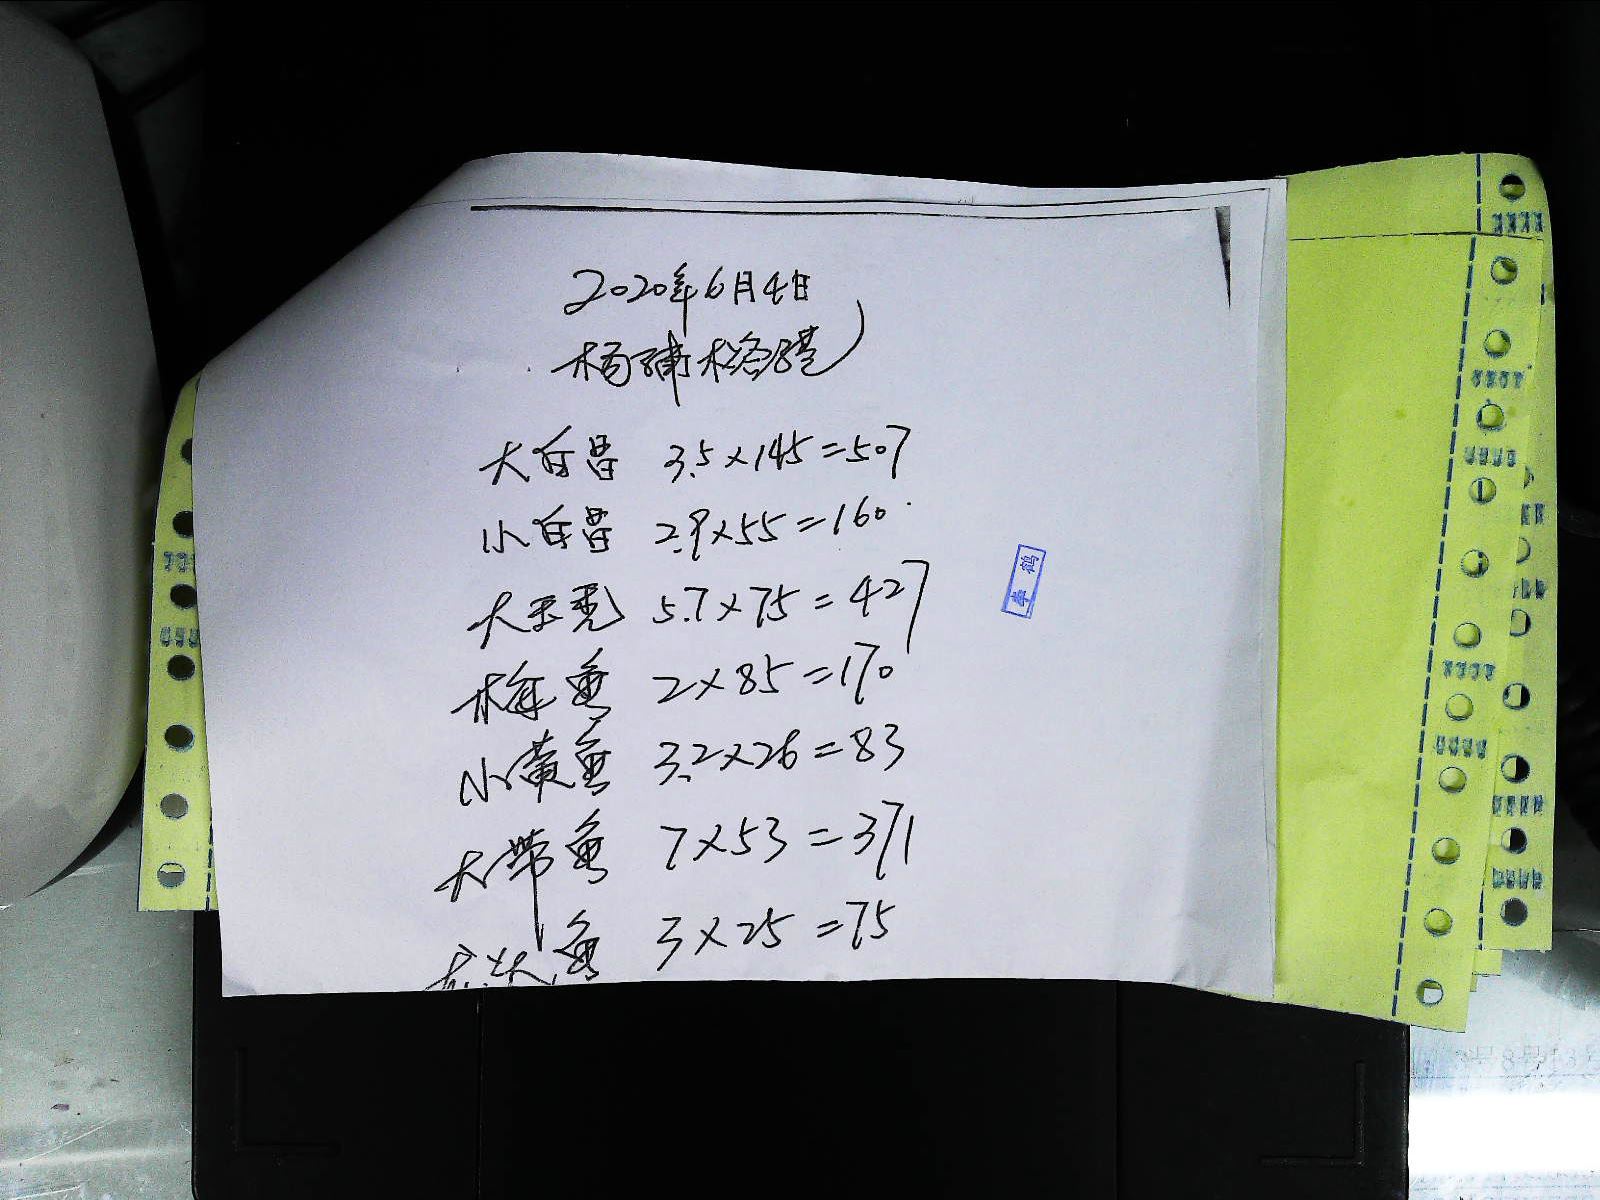 2020年6月4日
杨浦格腾
大白昌 3.5×145=507
小白昌 2.9×55=160
大玉秃 5.7×75=427
梅鱼 2×85=170
小黄鱼 3.2×26=83
大带鱼 7×53=371
鱼 3×25=75